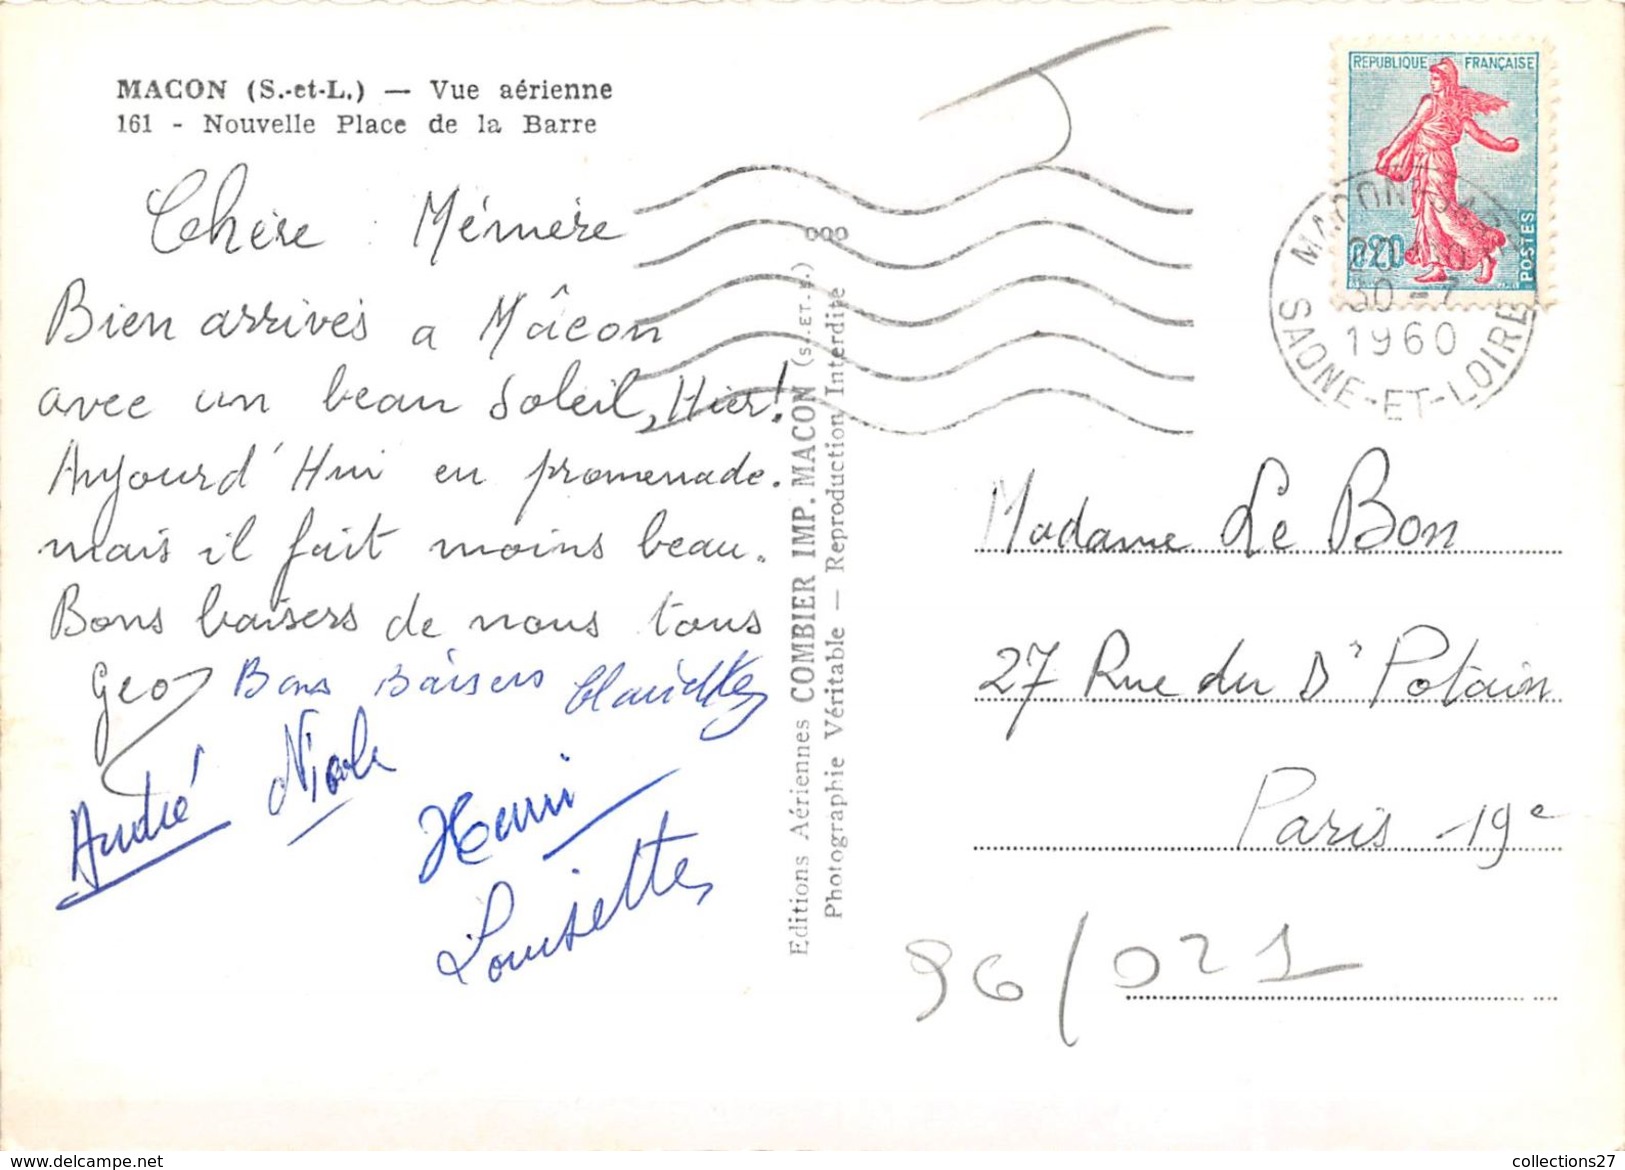 MACON (S.-et-L.) — Vue aérienne
161 - Nouvelle Place de la Barre
Chère Mémère
Bien arrivés a Mâcon
avec un beau soleil, Hier!
Aujourd'Hui en promenade.
mais il fait moins beau.
Bons baisers de nous tous
Geo Bons Baisers Claudette
André Nicole
Henri
Louisette
Editions Aériennes COMBIER IMP. MACON (S.-ET-L.) 000
Photographie Véritable — Reproduction Interdite
REPUBLIQUE FRANÇAISE
0,20
POSTES
MACON
30 - 7
1960
SAONE-ET-LOIRE
Madame Le Bon
27 Rue du Dr Potain
Paris -19e
96/021
collections27
www.delcampe.net